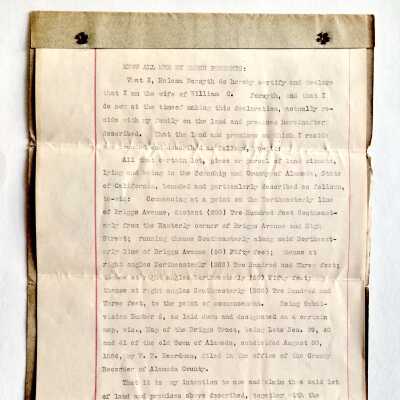 KNOW ALL MEN BY THESE PRESENTS:
That I, Helena Forsyth do hereby certify and declare
that I am the wife of William C. Forsyth, and that I
do now at the time of making this declaration, actually re-
side with my family on the land and premises hereinafter
described. That the land and premises on which I reside
bounded and described as follows, to-wit:
All that certain lot, piece or parcel of land situate,
lying and being in the Township and County of Alameda, State
of California, bounded and particularly described as follows,
to-wit: Commencing at a point on the Northeasterly line
of Briggs Avenue, distant (200) Two Hundred feet Southeast-
erly from the Easterly corner of Briggs Avenue and High
Street; running thence Southeasterly along said Northeast-
erly line of Briggs Avenue (50) Fifty feet; thence at
right angles Northeasterly (203) Two Hundred and Three feet;
thence at right angles Northwesterly (50) Fifty feet;
thence at right angles Southwesterly (203) Two Hundred and
Three feet, to the point of commencement. Being Subdi-
vision Number 5, as laid down and designated on a certain
map, viz., Map of the Briggs Tract, being Lots Nos. 39, 40
and 41 of the old Town of Alameda, subdivided August 20,
by W. F. Boardman, filed in the office of the County
Recorder of Alameda County.
That it is my intention to use and claim the said lot
of land and premises above described, together with the